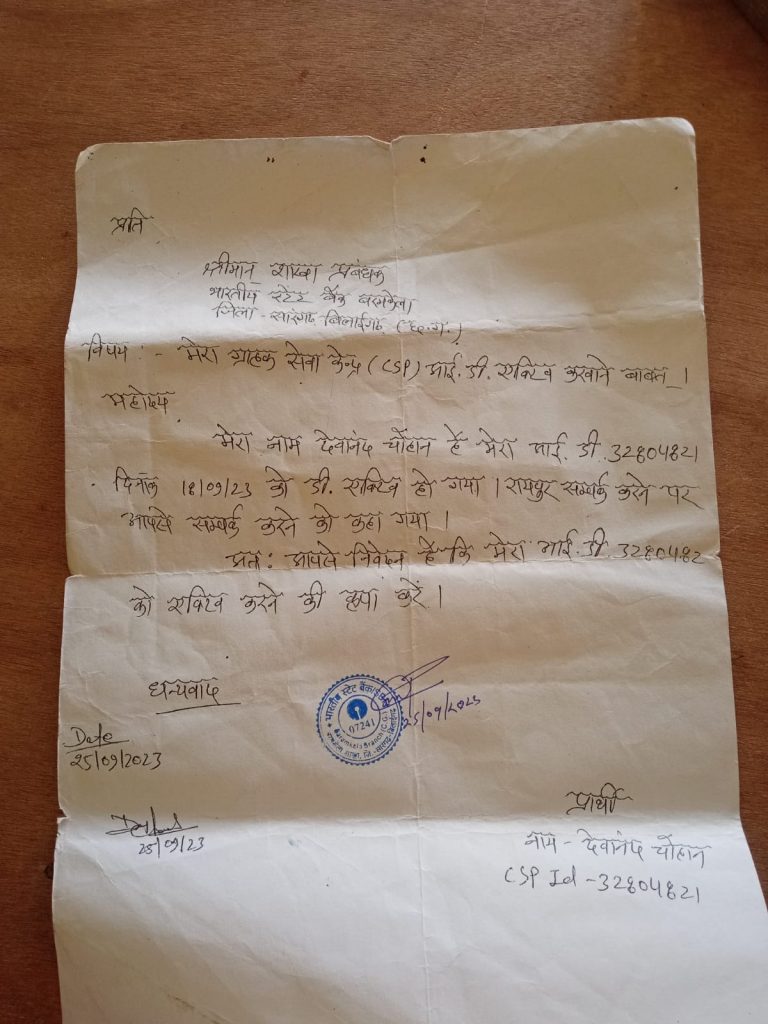 प्रति
श्रीमान् शाखा प्रबंधक
भारतीय स्टेट बैंक बरमकेला
जिला - सारंगढ़ बिलाईगढ़ (छ.ग.)
विषय :- मेरा ग्राहक सेवा केन्द्र (CSP) आई.डी. एक्टिव करवाने बाबत् ।
महोदय
मेरा नाम देवानंद चौहान है मेरा आई.डी. 32804821
दिनांक 18/09/23 को डी. एक्टिव हो गया । रायपुर सम्पर्क करने पर
आपसे सम्पर्क करने को कहा गया ।
अतः आपसे निवेदन है कि मेरा आई.डी. 3280482
को एक्टिव करने की कृपा करें ।
धन्यवाद
भारतीय स्टेट बैंक
07241
Baramkela Branch (C.G.)
25/09/2023
Date
25/09/2023
25/09/23
प्रार्थी
नाम - देवानंद चौहान
CSP Id - 32804821